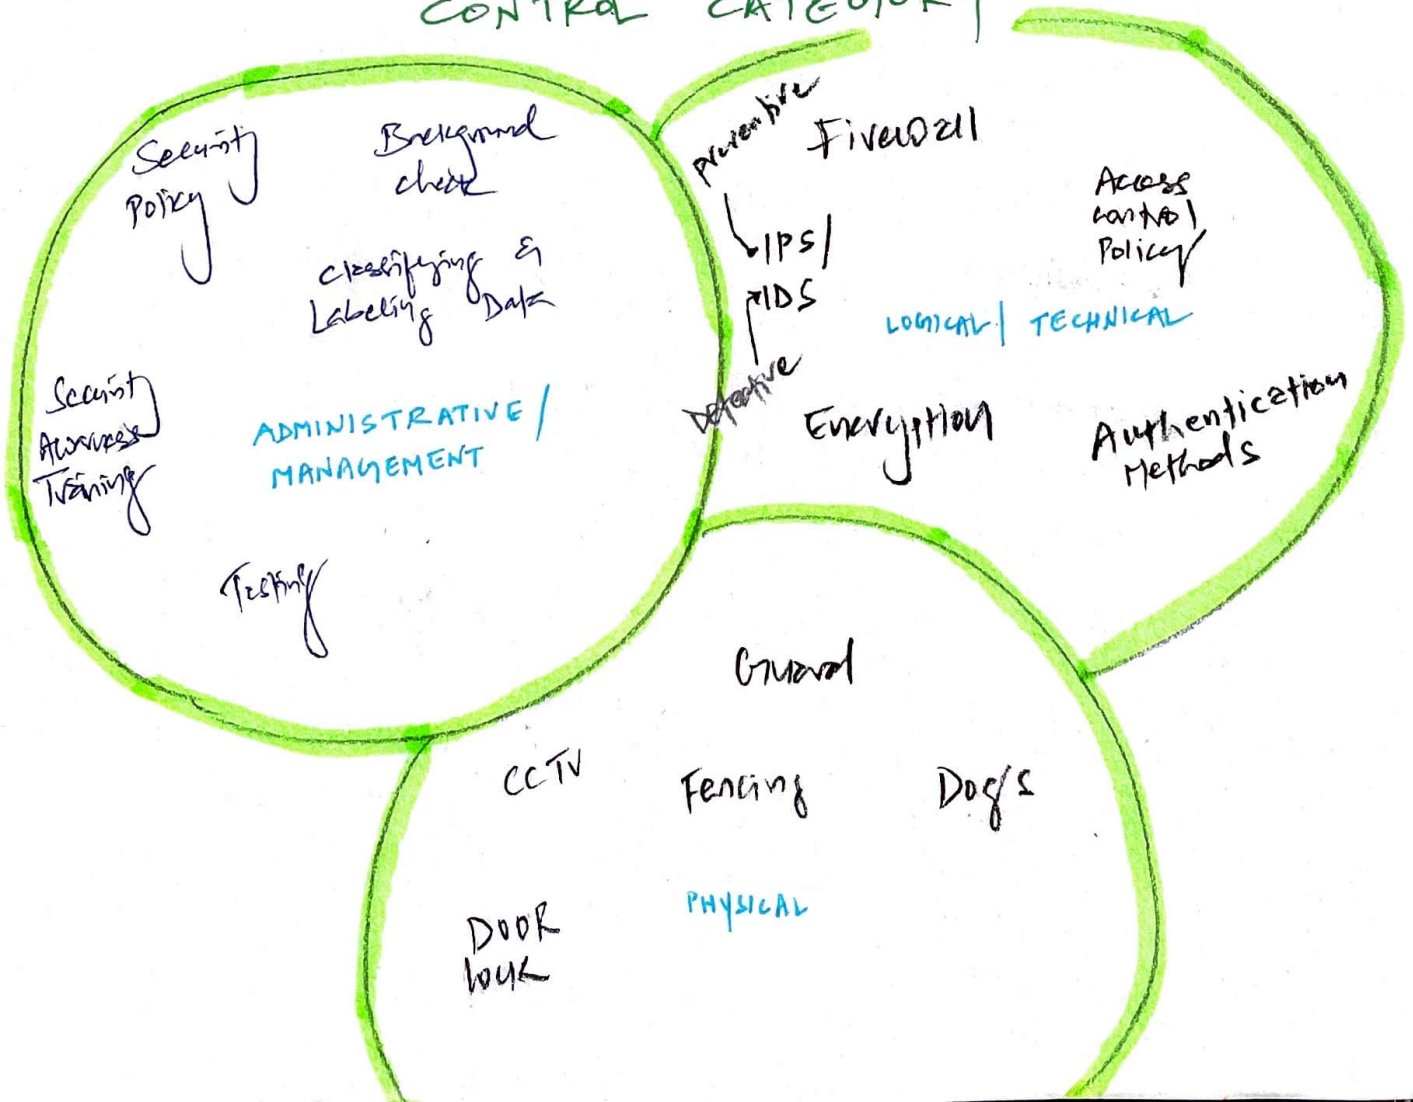 CONTROL CATEGORY
Security
Policy
Background
check
Classifying &
Labeling Data
Security
Awareness
Training
ADMINISTRATIVE /
MANAGEMENT
Testing
preventive
Firewall
IPS/
IDS
Detective
Access
control
Policy
LOGICAL / TECHNICAL
Encryption
Authentication
Methods
Guard
CCTV
Fencing
Dogs
PHYSICAL
DOOR
lock